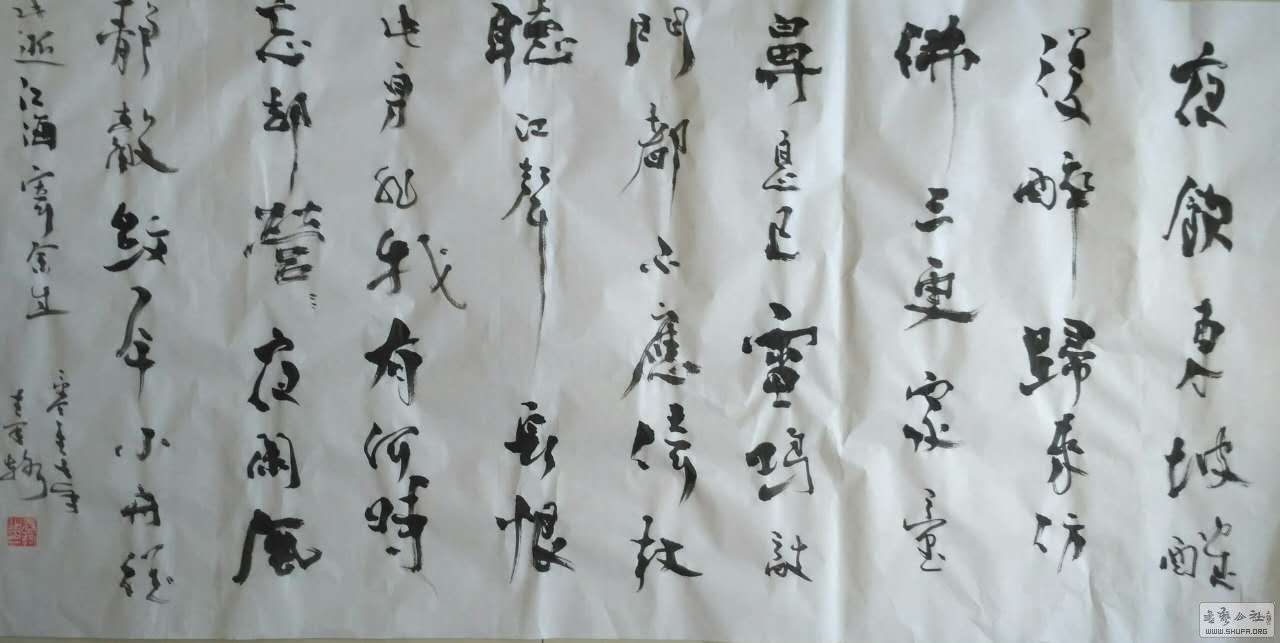 夜飲東坡醒
復醉歸來仿
佛三更家童
鼻息已雷鳴敲
門都不應倚杖
聽江聲長恨
此身非我有何時
忘却營々夜闌風
靜縠紋平小舟從
此逝江海寄余生
書藝公社
WWW.SHUFA.ORG